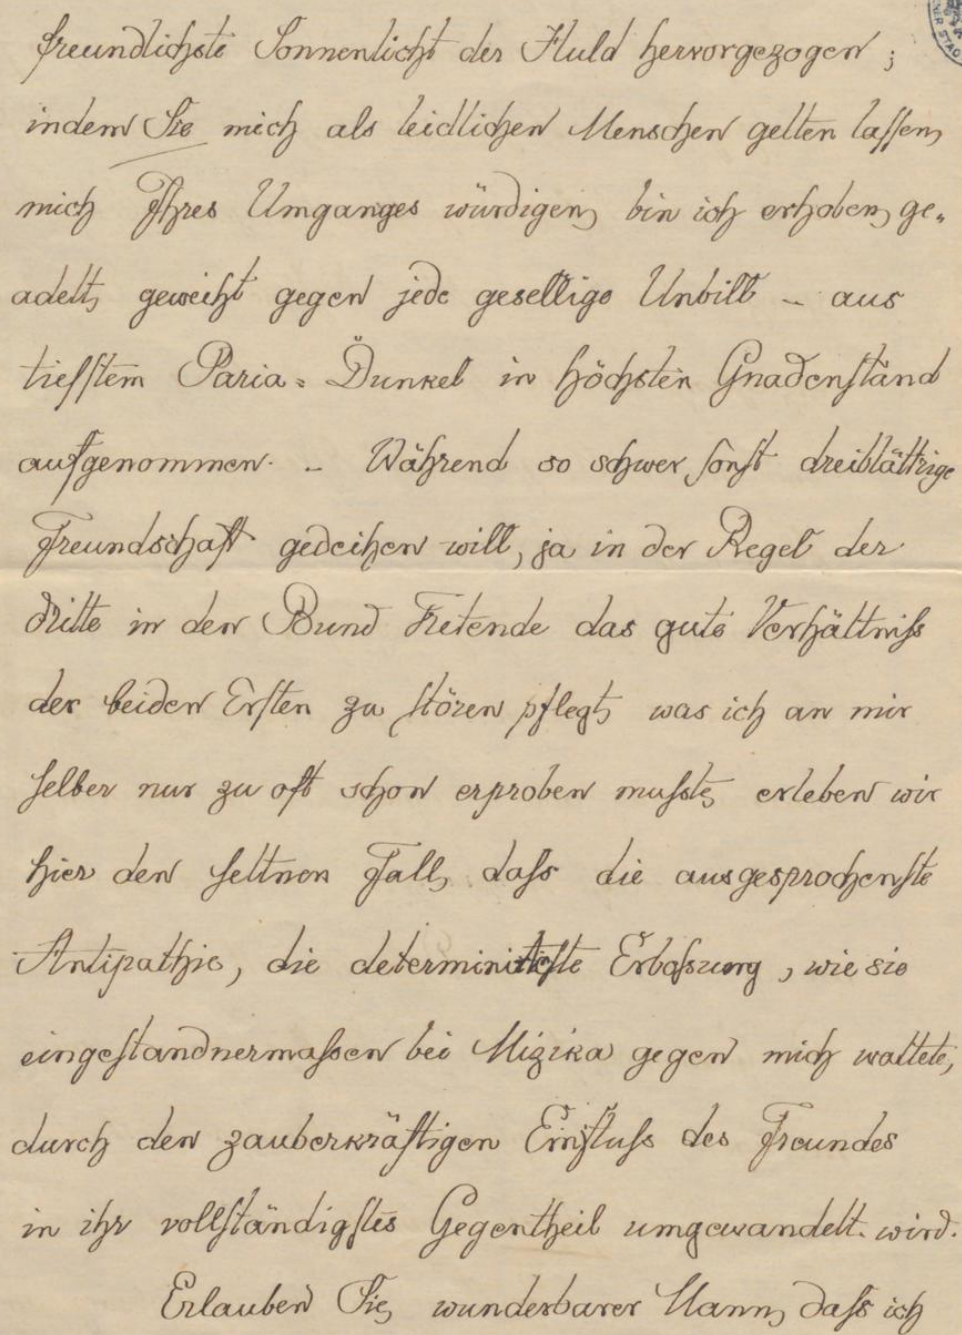 freundlichste Sonnenlicht der Huld hervorgezogen;
indem Sie mich als leidlichen Menschen gelten lassen,
mich Ihres Umganges würdigen, bin ich erhoben, ge-
adelt, geweiht gegen jede gesellige Unbill – aus
tiefstem Paria-Dünkel in höchsten Gnadenstand
aufgenommen. – Während so schwer sonst dreiblättrige
Freundschaft gedeihen will, ja in der Regel der
dritte in den Bund Tretende das gute Verhältniss
der beiden Ersten zu stören pflegt, was ich an mir
selber nur zu oft schon erproben musste, erleben wir
hier den seltnen Fall, dass die ausgesprochenste
Antipathie, die determinirteste Erbossung, wie sie
eingestandnermassen bei Mizika gegen mich waltete,
durch den zauberkräftigen Einfluss des Freundes
in ihr vollständigstes Gegentheil umgewandelt wird.
Erlauben Sie, wunderbarer Mann, dass ich